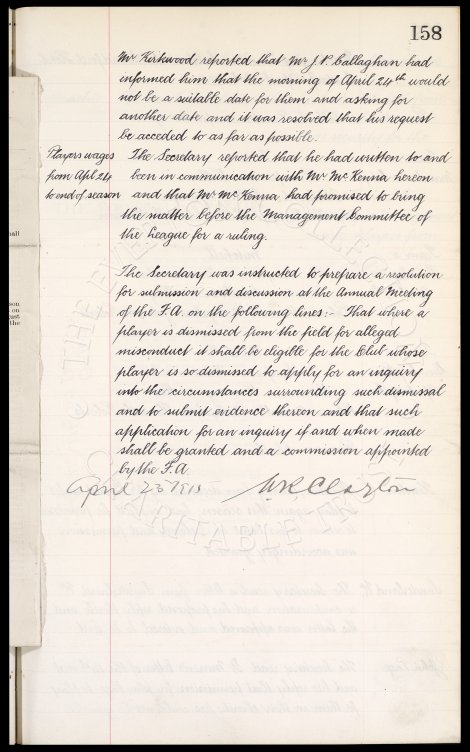 158
Mr Kirkwood reported that Mr J.P. Callaghan had
informed him that the morning of April 24th would
not be a suitable date for them and asking for
another date and it was resolved that his request
be acceded to as far as possible.
Players wages
from Apl 24
to end of season
The Secretary reported that he had written to and
been in communication with Mr McKenna hereon
and that Mr McKenna had promised to bring
the matter before the Management Committee of
the League for a ruling.
The Secretary was instructed to prepare a resolution
for submission and discussion at the Annual Meeting
of the F.A. on the following lines:- That where a
player is dismissed from the field for alleged
misconduct it shall be eligible for the Club whose
player is so dismissed to apply for an inquiry
into the circumstances surrounding such dismissal
and to submit evidence thereon and that such
application for an inquiry if and when made
shall be granted and a commission appointed
by the F.A.
April 23 1915 W R Clayton